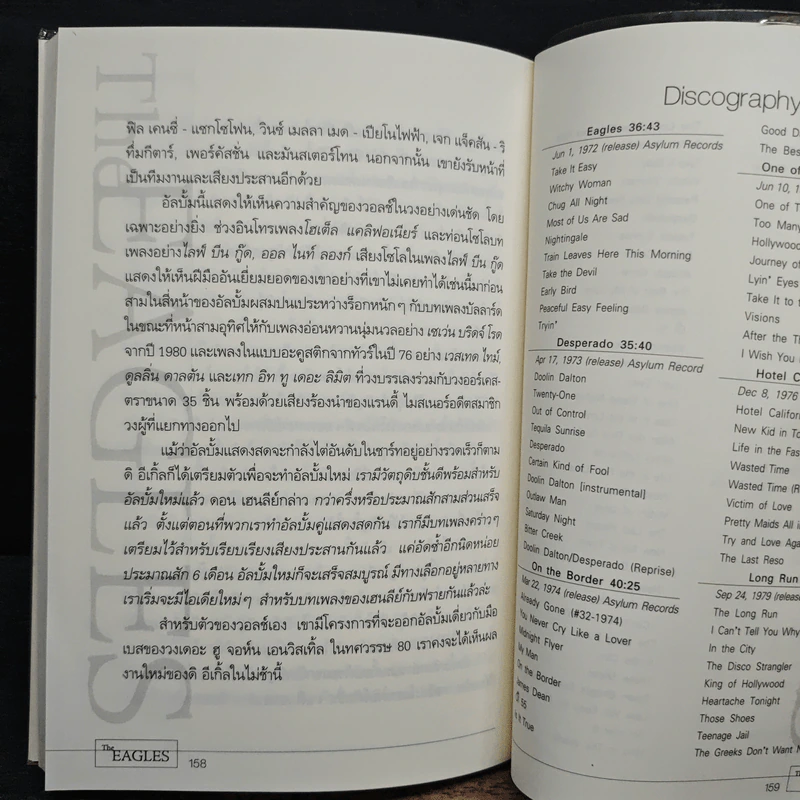 The EAGLES
ฟิล เคนซี่ - แซกโซโฟน, วินซ์ เมลลา เมด - เปียโนไฟฟ้า, เจก แจ็คสัน - ริ
ทึ่มกีตาร์, เพอร์คัสชั่น และมันสเตอร์โทน นอกจากนั้น เขายังรับหน้าที่
เป็นทีมงานและเสียงประสานอีกด้วย
อัลบั้มนี้แสดงให้เห็นความสำคัญของวอลช์ในวงอย่างเด่นชัด โดย
เฉพาะอย่างยิ่ง ช่วงอินโทรเพลงโฮเต็ล แคลิฟอเนียร์ และท่อนโซโลบท
เพลงอย่างไลฟ์ บีน กู๊ด, ออล ไนท์ ลองก์ เสียงโซโลในเพลงไลฟ์ บีน กู๊ด
แสดงให้เห็นฝีมืออันเยี่ยมยอดของเขาอย่างที่เขาไม่เคยทำได้เช่นนี้มาก่อน
สามในสี่หน้าของอัลบั้มผสมปนเประหว่างร็อกหนักๆ กับบทเพลงบัลลาร์ด
ในขณะที่หน้าสามอุทิศให้กับเพลงอ่อนหวานนุ่มนวลอย่าง เซเว่น บริดจ์ โรด
จากปี 1980 และเพลงในแบบอะคูสติกจากทัวร์ในปี 76 อย่าง เวสเทด ไทม์,
ดูลลิ่น ดาลตัน และเทก อิท ทู เดอะ ลิมิต ที่วงบรรเลงร่วมกับวงออร์เคส-
ตราขนาด 35 ชิ้น พร้อมด้วยเสียงร้องนำของแรนดี้ ไมสเนอร์อดีตสมาชิก
วงผู้ที่แยกทางออกไป
แม้ว่าอัลบั้มแสดงสดจะกำลังไต่อันดับในชาร์ทอยู่อย่างรวดเร็วก็ตาม
ดิ อีเกิ้ลก็ได้เตรียมตัวเพื่อจะทำอัลบั้มใหม่ เรามีวัตถุดิบชั้นดีพร้อมสำหรับ
อัลบั้มใหม่แล้ว ดอน เฮนลีย์กล่าว กว่าครึ่งหรือประมาณสักสามส่วนเสร็จ
แล้ว ตั้งแต่ตอนที่พวกเราทำอัลบั้มคู่แสดงสดกัน เราก็มีบทเพลงคร่าวๆ
เตรียมไว้สำหรับเรียบเรียงเสียงประสานกันแล้ว แค่อัดซ้ำอีกนิดหน่อย
ประมาณสัก 6 เดือน อัลบั้มใหม่ก็จะเสร็จสมบูรณ์ มีทางเลือกอยู่หลายทาง
เราเริ่มจะมีไอเดียใหม่ๆ สำหรับบทเพลงของเฮนลีย์กับฟรายกันแล้วล่ะ
สำหรับตัวของวอลช์เอง เขามีโครงการที่จะออกอัลบั้มเดี่ยวกับมือ
เบสของวงเดอะ ฮู จอห์น เอนวิสเทิ้ล ในทศวรรษ 80 เราคงจะได้เห็นผล
งานใหม่ของดิ อีเกิ้ลในไม่ช้านี้
The EAGLES 158
Discography
Eagles 36:43
Jun 1, 1972 (release) Asylum Records
Take It Easy
Witchy Woman
Chug All Night
Most of Us Are Sad
Nightingale
Train Leaves Here This Morning
Take the Devil
Early Bird
Peaceful Easy Feeling
Tryin'
Desperado 35:40
Apr 17, 1973 (release) Asylum Record
Doolin Dalton
Twenty-One
Out of Control
Tequila Sunrise
Desperado
Certain Kind of Fool
Doolin Dalton [instrumental]
Outlaw Man
Saturday Night
Bitter Creek
Doolin Dalton/Desperado (Reprise)
On the Border 40:25
Mar 22, 1974 (release) Asylum Records
Already Gone (#32-1974)
You Never Cry Like a Lover
Midnight Flyer
My Man
On the Border
James Dean
Ol' 55
Is It True
Good D
The Bes
One of
Jun 10, 1
One of T
Too Many
Hollywood
Journey of
Lyin' Eyes
Take It to t
Visions
After the Th
I Wish You
Hotel C
Dec 8, 1976
Hotel Californ
New Kid in To
Life in the Fas
Wasted Time
Wasted Time (R
Victim of Love
Pretty Maids All i
Try and Love Aga
The Last Reso
Long Run
Sep 24, 1979 (release)
The Long Run
I Can't Tell You Why
In the City
The Disco Strangler
King of Hollywood
Heartache Tonight
Those Shoes
Teenage Jail
The Greeks Don't Want N
159